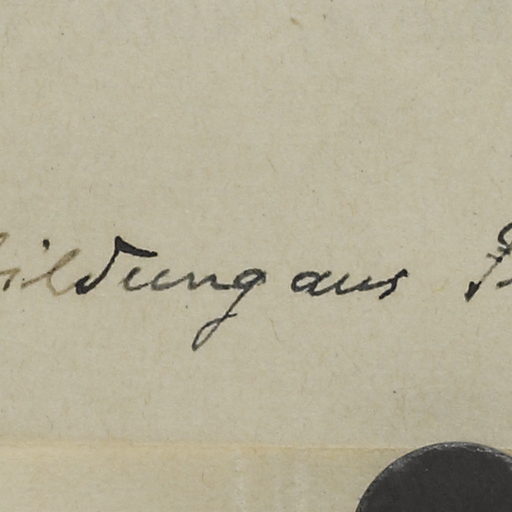 bildung aus